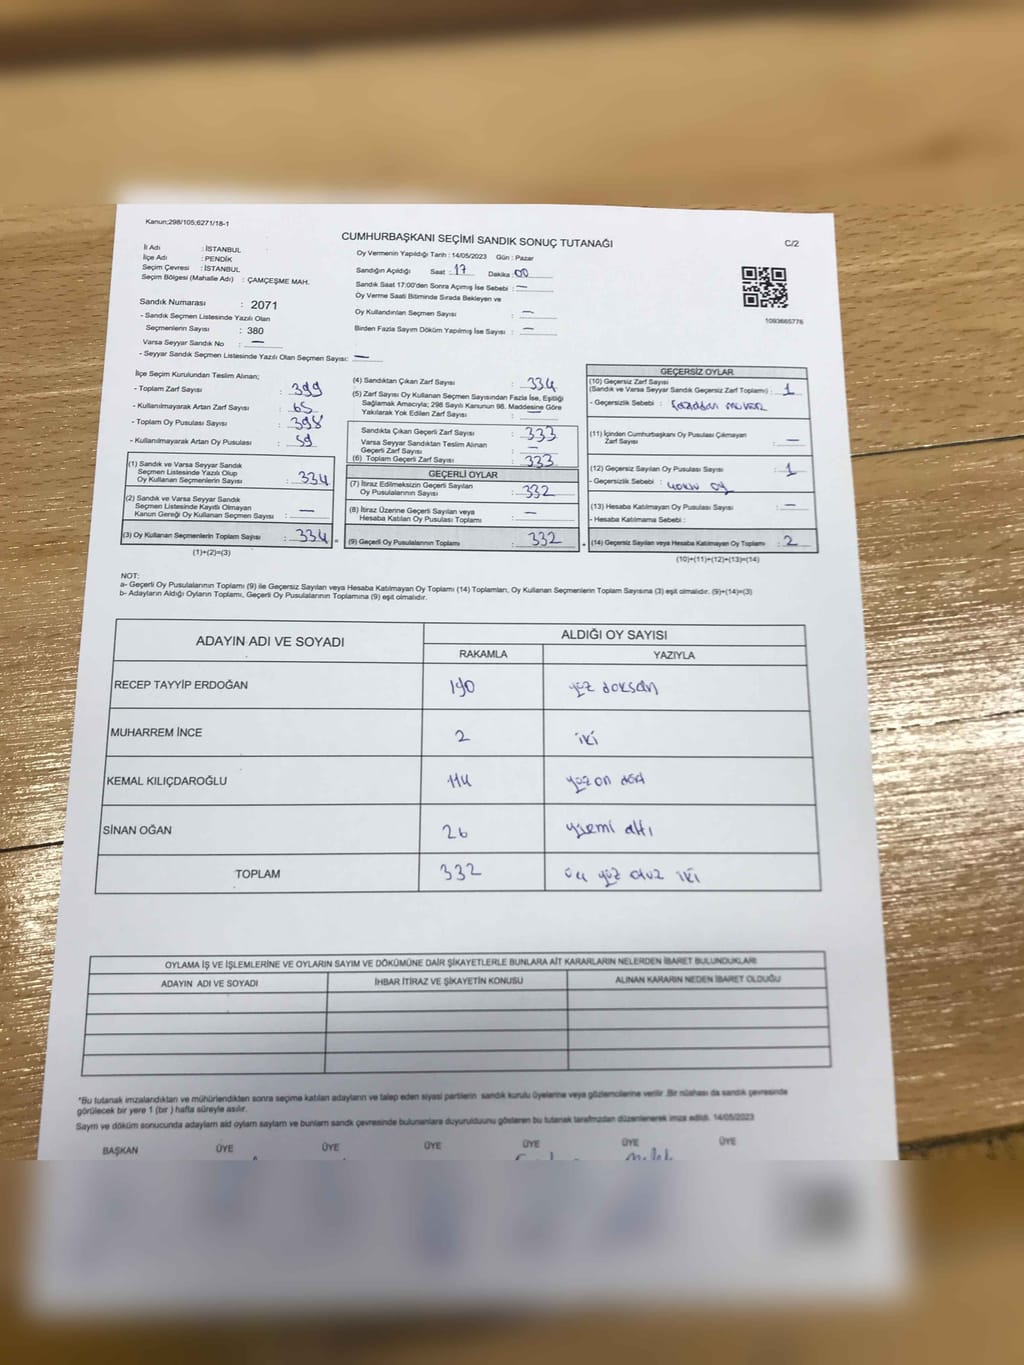 Kanun;298/105;6271/18-1
CUMHURBAŞKANI SEÇİMİ SANDIK SONUÇ TUTANAĞI
C/2
İl Adı : İSTANBUL
İlçe Adı : PENDİK
Seçim Çevresi : İSTANBUL
Seçim Bölgesi (Mahalle Adı) : ÇAMÇEŞME MAH.
Sandık Numarası : 2071
- Sandık Seçmen Listesinde Yazılı Olan
Seçmenlerin Sayısı : 380
Varsa Seyyar Sandık No : —
- Seyyar Sandık Seçmen Listesinde Yazılı Olan Seçmen Sayısı: —
Oy Vermenin Yapıldığı Tarih : 14/05/2023 Gün : Pazar
Sandığın Açıldığı Saat : 17 Dakika : 00
Sandık Saat 17:00'den Sonra Açımış İse Sebebi : —
Oy Verme Saati Bitiminde Sırada Bekleyen ve
Oy Kullandırılan Seçmen Sayısı : —
Birden Fazla Sayım Döküm Yapılmış İse Sayısı : —
1093665776
İlçe Seçim Kurulundan Teslim Alınan;
- Toplam Zarf Sayısı : 399
- Kullanılmayarak Artan Zarf Sayısı : 65
- Toplam Oy Pusulası Sayısı : 398
- Kullanılmayarak Artan Oy Pusulası : 59
(1) Sandık ve Varsa Seyyar Sandık
Seçmen Listesinde Yazılı Olup
Oy Kullanan Seçmenlerin Sayısı : 334
(2) Sandık ve Varsa Seyyar Sandık
Seçmen Listesinde Kayıtlı Olmayan
Kanun Gereği Oy Kullanan Seçmen Sayısı : —
(3) Oy Kullanan Seçmenlerin Toplam Sayısı : 334 =
(1)+(2)=(3)
(4) Sandıktan Çıkan Zarf Sayısı : 334
(5) Zarf Sayısı Oy Kullanan Seçmen Sayısından Fazla İse, Eşitliği
Sağlamak Amacıyla; 298 Sayılı Kanunun 98. Maddesine Göre
Yakılarak Yok Edilen Zarf Sayısı : —
Sandıkta Çıkan Geçerli Zarf Sayısı : 333
Varsa Seyyar Sandıktan Teslim Alınan
Geçerli Zarf Sayısı : —
(6) Toplam Geçerli Zarf Sayısı : 333
GEÇERLİ OYLAR
(7) İtiraz Edilmeksizin Geçerli Sayılan
Oy Pusulalarının Sayısı : 332
(8) İtiraz Üzerine Geçerli Sayılan veya
Hesaba Katılan Oy Pusulası Toplamı : —
(9) Geçerli Oy Pusulalarının Toplamı : 332 +
GEÇERSİZ OYLAR
(10) Geçersiz Zarf Sayısı
(Sandık ve Varsa Seyyar Sandık Geçersiz Zarf Toplamı) : 1
- Geçersizlik Sebebi :
(11) İçinden Cumhurbaşkanı Oy Pusulası Çıkmayan
Zarf Sayısı : —
(12) Geçersiz Sayılan Oy Pusulası Sayısı : 1
- Geçersizlik Sebebi : oy
(13) Hesaba Katılmayan Oy Pusulası Sayısı : —
- Hesaba Katılmama Sebebi :
(14) Geçersiz Sayılan veya Hesaba Katılmayan Oy Toplamı : 2
(10)+(11)+(12)+(13)=(14)
NOT:
a- Geçerli Oy Pusulalarının Toplamı (9) ile Geçersiz Sayılan veya Hesaba Katılmayan Oy Toplamı (14) Toplamları, Oy Kullanan Seçmenlerin Toplam Sayısına (3) eşit olmalıdır. (9)+(14)=(3)
b- Adayların Aldığı Oyların Toplamı, Geçerli Oy Pusulalarının Toplamına (9) eşit olmalıdır.
ADAYIN ADI VE SOYADI ALDIĞI OY SAYISI
RAKAMLA YAZIYLA
RECEP TAYYİP ERDOĞAN 190 yüz doksan
MUHARREM İNCE 2 iki
KEMAL KILIÇDAROĞLU 114 yüz on dört
SİNAN OĞAN 26 yirmi altı
TOPLAM 332 üç yüz otuz iki
OYLAMA İŞ VE İŞLEMLERİNE VE OYLARIN SAYIM VE DÖKÜMÜNE DAİR ŞİKAYETLERLE BUNLARA AİT KARARLARIN NELERDEN İBARET BULUNDUKLARI
ADAYIN ADI VE SOYADI İHBAR İTİRAZ VE ŞİKAYETİN KONUSU ALINAN KARARIN NEDEN İBARET OLDUĞU
*Bu tutanak imzalandıktan ve mühürlendikten sonra seçime katılan adayların ve talep eden siyasi partilerin sandık kurulu üyelerine veya gözlemcilerine verilir .Bir nüshası da sandık çevresinde
görülecek bir yere 1 (bir ) hafta süreyle asılır.
Sayım ve döküm sonucunda adayların ald oyların sayıları ve bunların sandık çevresinde bulunanlara duyurulduunu gösteren bu tutanak tarafımızdan düzenlenerek imza edildi. 14/05/2023
BAŞKAN ÜYE ÜYE ÜYE ÜYE ÜYE ÜYE